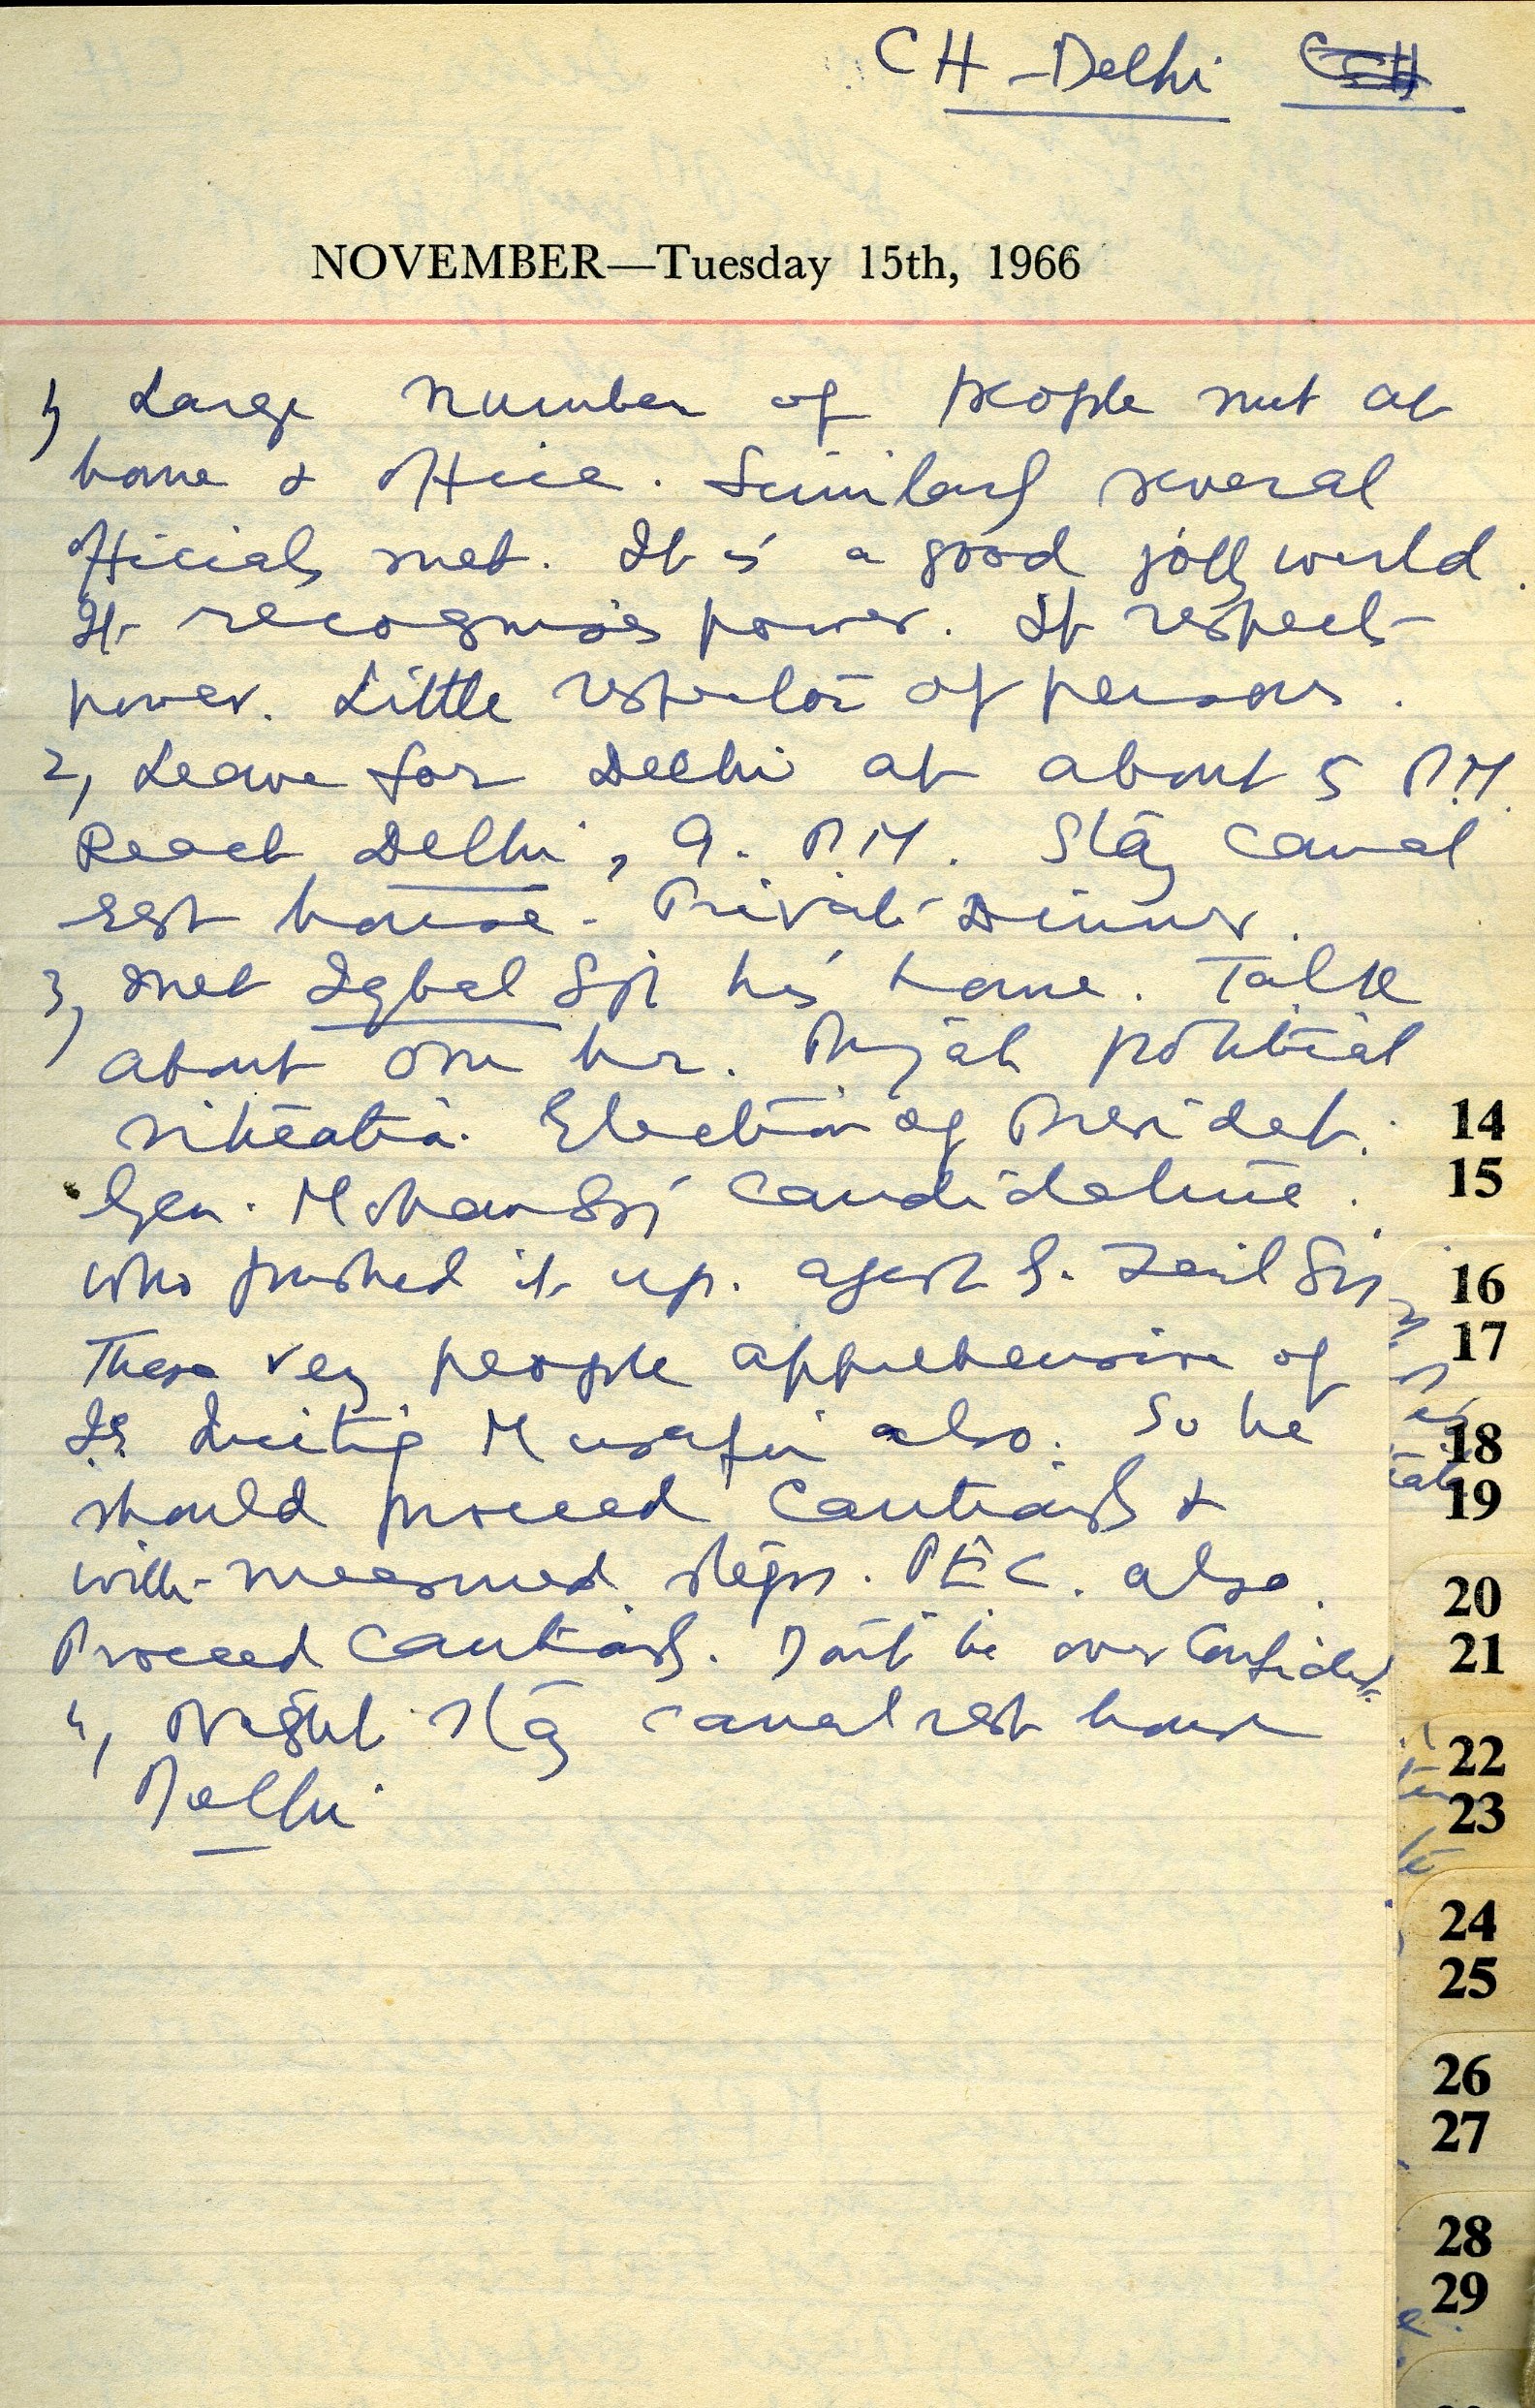 CH - Delhi
NOVEMBER—Tuesday 15th, 1966
1, Large number of people met at
home & office. Similarly several
officials met. It is a good jolly world.
It recognises power. It respects
power. Little of persons.
2, Leave for Delhi at about 5 P.M.
Reach Delhi, 9. P.M. Stay canal
rest house. Private Dinner.
3, met Iqbal Sgh his home. Talk
about one hr. Punjab political
situation. Election of President.
Gen. Mohan Sgh candidature.
who pushed it up. agest S. Zail Sgh
These very people apprehensive of
Musafir also. So he
should proceed cautiously &
with measured steps. P.E.C. also.
Proceed cautiously. Don't be over confident.
4, Night stay canal rest house
Delhi
14
15
16
17
18
19
20
21
22
23
24
25
26
27
28
29